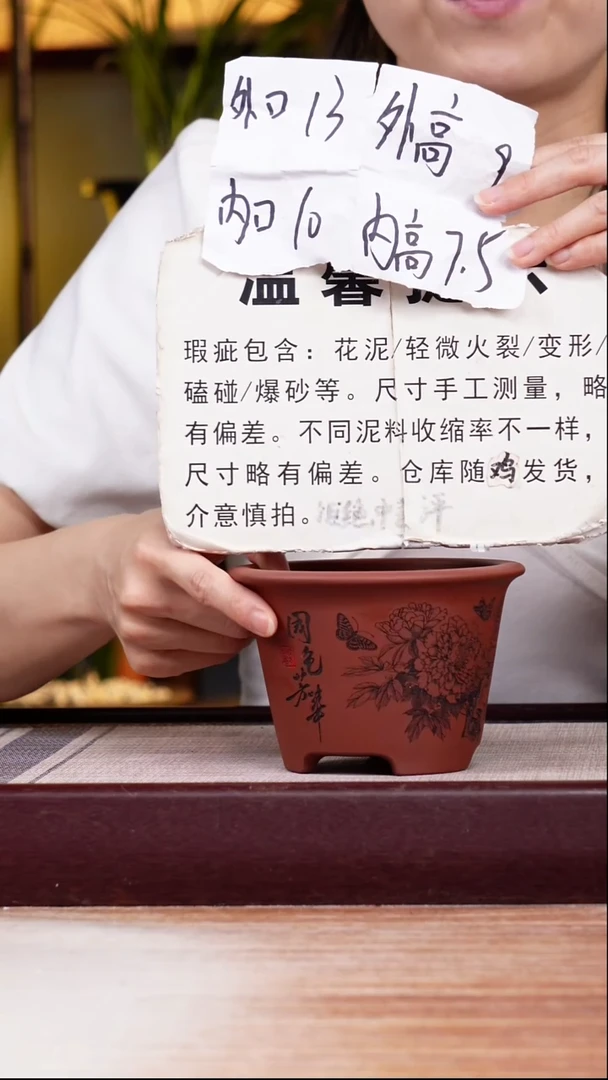 外口 13 外高 9
内口 10 内高 7.5
温馨提
瑕疵包含：花泥/轻微火裂/变形/
磕碰/爆砂等。尺寸手工测量，略
有偏差。不同泥料收缩率不一样，
尺寸略有偏差。仓库随鸡发货，
介意慎拍。
国色芳华